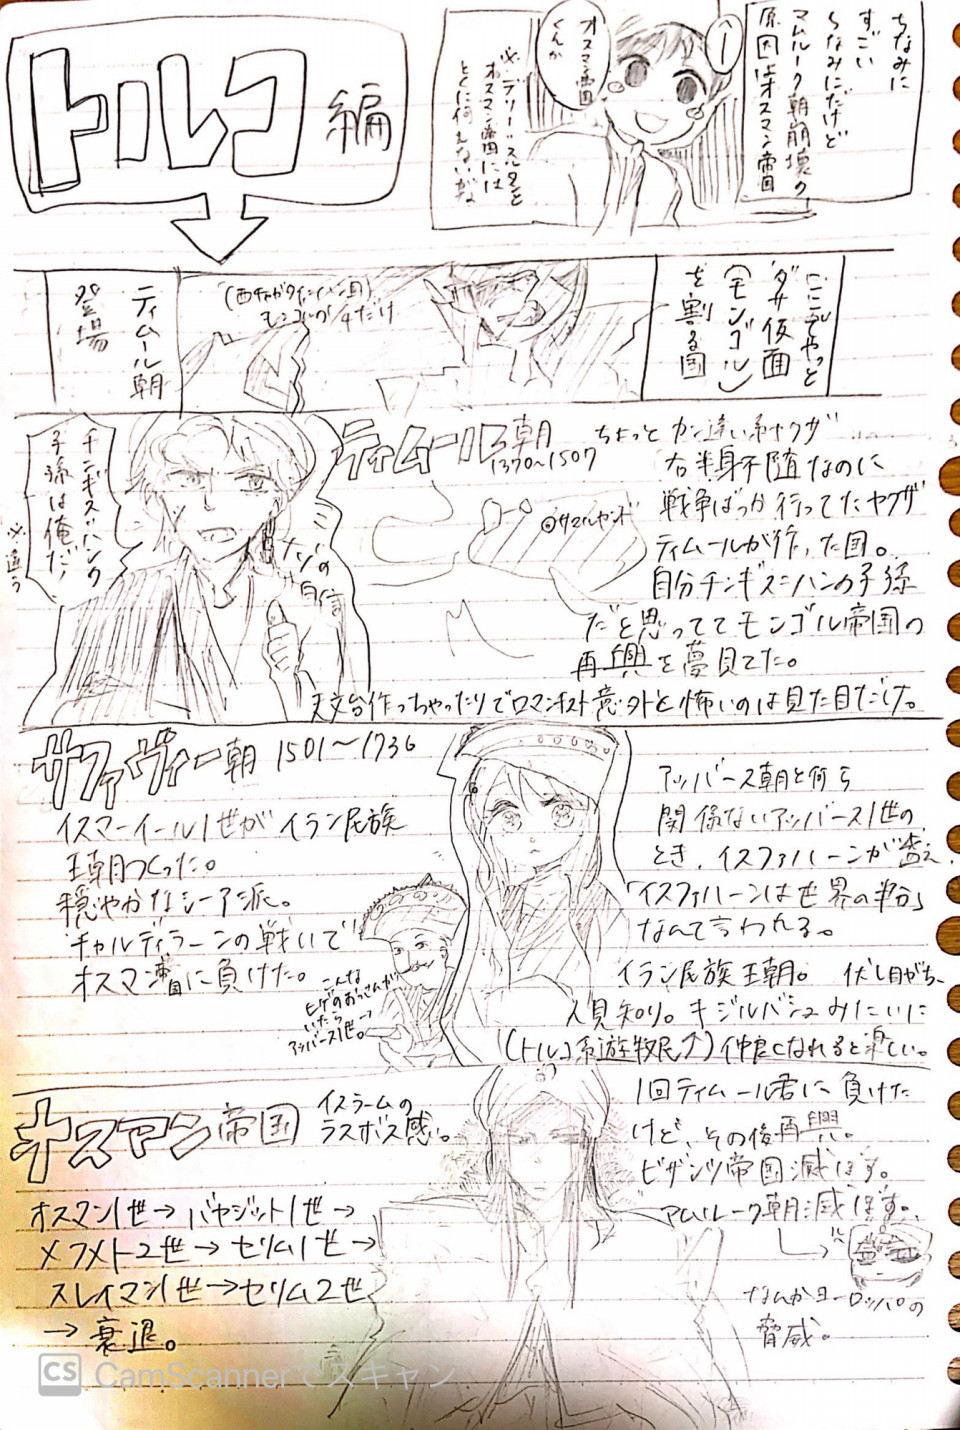 ちなみに
すごい
ちなみにだけど
マムルーク朝崩壊の
原因はオスマン帝国
へー
オスマン帝国
くんか
※デリー=スルタンと
オスマン帝国には
とくに何もないがな
トルコ編
ここでやっと
ダサ仮面
(モンゴル)
を割る国
(西チャガタイ=ハン国)
モンゴルの1/4だけ
ティムール朝
登場
ティムール朝
1370〜1507
チンギス=ハンの
子孫は俺だ!
※違う
ナゾの
自信
◎サマルカンド
ちょっとカン違い系ヤクザ
右半身不随なのに
戦争ばっか行ってたヤクザ
ティムールが作った国。
自分チンギス=ハンの子孫
だと思っててモンゴル帝国の
再興を夢見てた。
天文台作っちゃったりでロマンチスト意外と怖いのは見た目だけ。
サファヴィー朝 1501〜1736
イスマーイール1世がイラン民族
王朝つくった。
穏やかなシーア派。
チャルディラーンの戦いで
オスマン帝国に負けた。
こんな
ヒゲのおっさんが
いたら
アッバース1世。→
アッバース朝と何ら
関係ないアッバース1世の
とき、イスファハーンが栄え、
「イスファハーンは世界の半分」
なんて言われる。
イラン民族王朝。 伏し目がち、
人見知り。キジルバシュみたいに
(トルコ系遊牧民↑)仲良くなれると楽しい。
オスマン帝国
イスラームの
ラスボス感。
オスマン1世→バヤジット1世→
メフメト2世→セリム1世→
スレイマン1世→セリム2世
→衰退。
1回ティムール君に負けた
けど、その後再興。
ビザンツ帝国滅ぼす。
マムルーク朝滅ぼす。
なんかヨーロッパの
脅威。
CS CamScannerでスキャン